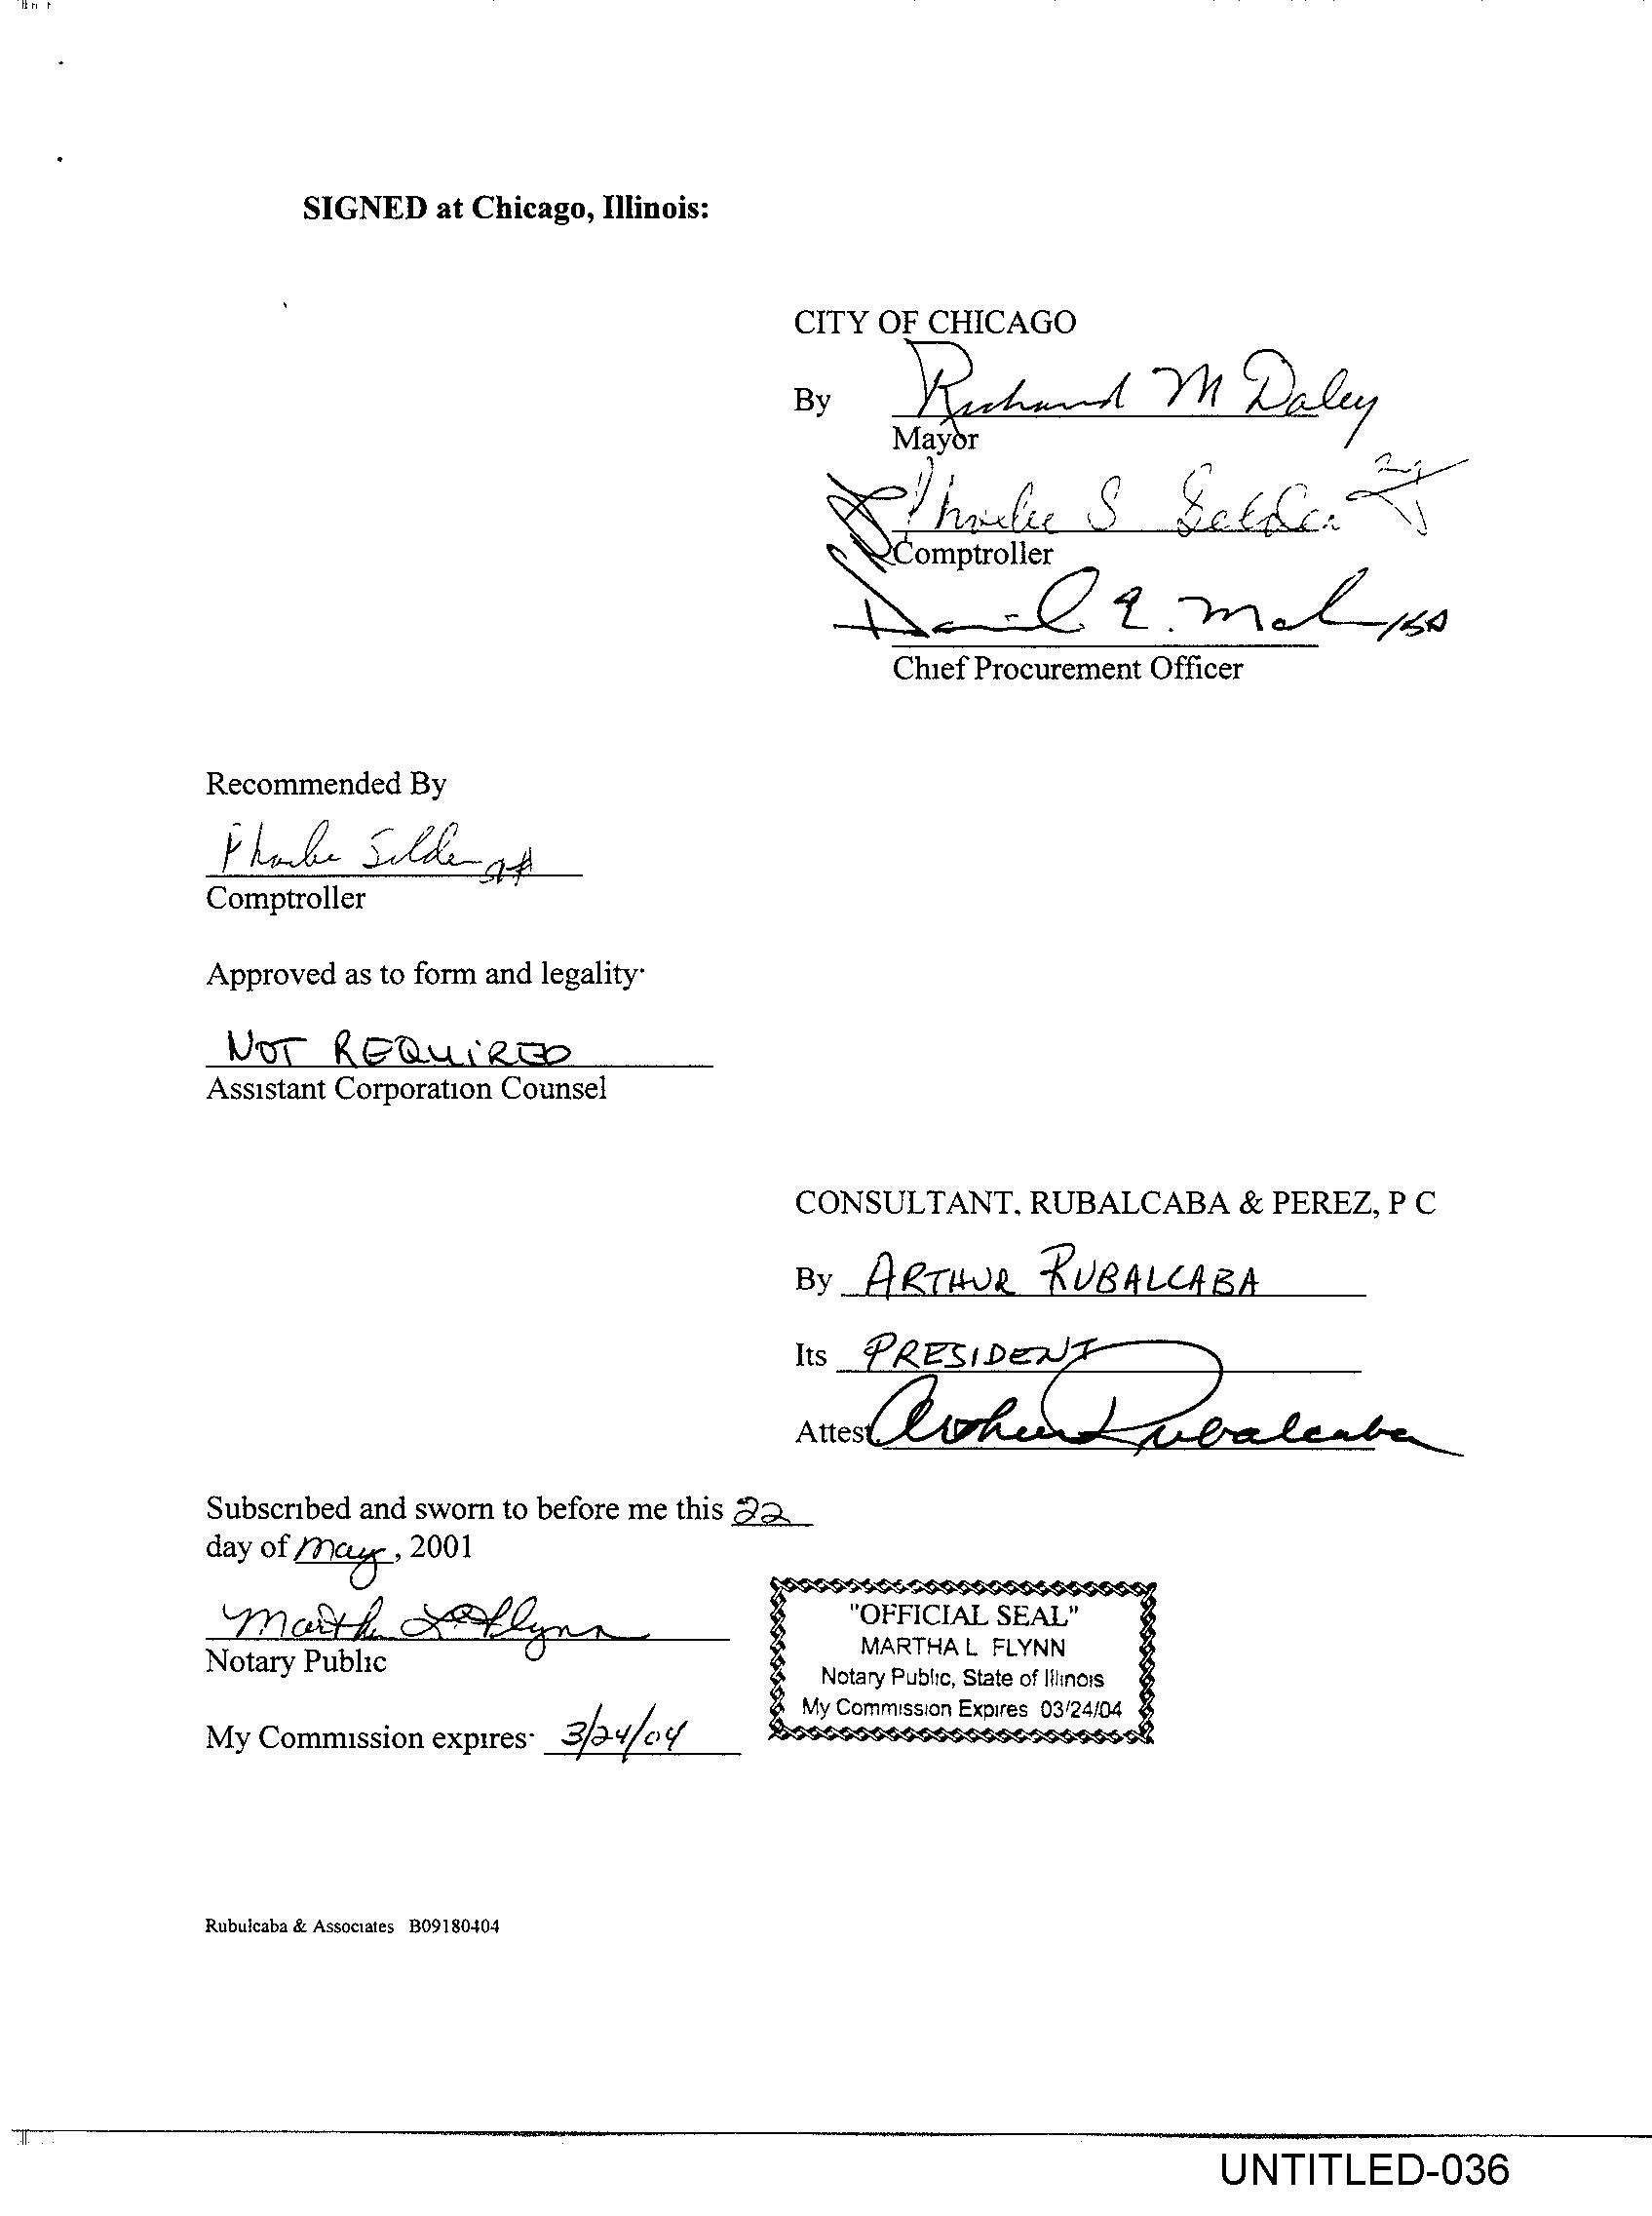 SIGNED at Chicago, Illinois:
CITY OF CHICAGO
By Richard M Daley
Mayor
Phoebe S Selden
Comptroller
Chief Procurement Officer
Recommended By
Phoebe Selden
Comptroller
Approved as to form and legality
NOT REQUIRED
Assistant Corporation Counsel
CONSULTANT. RUBALCABA & PEREZ, P C
By ARTHUR RUBALCABA
Its PRESIDENT
Attest Arthur Rubalcaba
Subscribed and sworn to before me this 22
day of May, 2001
Martha L Flynn
Notary Public
"OFFICIAL SEAL"
MARTHA L FLYNN
Notary Public, State of Illinois
My Commission Expires 03/24/04
My Commission expires 3/24/04
Rubulcaba & Associates B09180404
UNTITLED-036